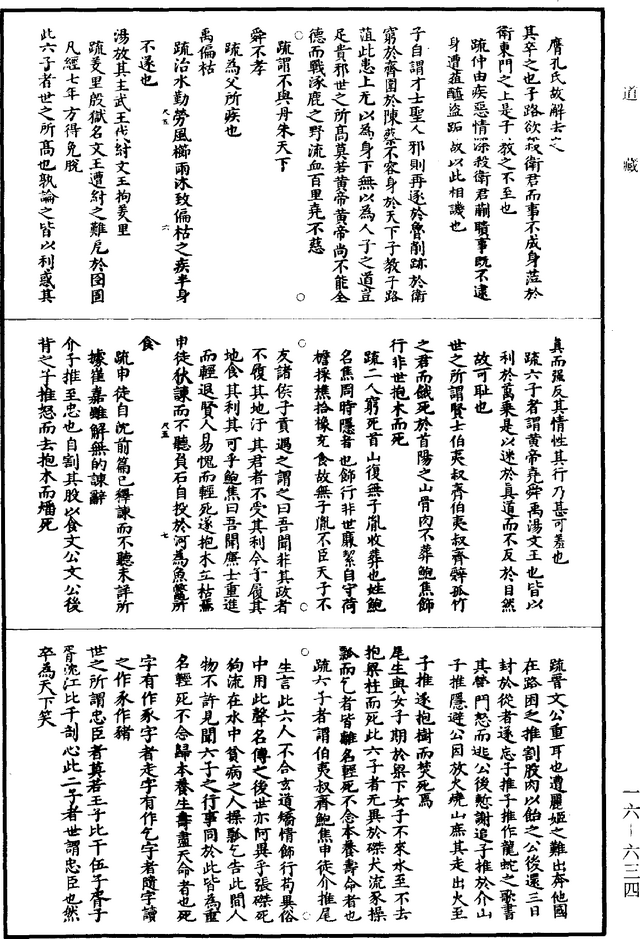 道藏
膺孔氏故解去之
其卒之也子路欲殺衛君而事不成身菹於
衛東門之上是子教之不至也
疏仲由疾惡情深殺衛君蒯瞶事既不逮
身遭菹醢盜跖故以此相譏也
子自謂才士聖人邪則再逐於魯削跡於衛
窮於齊圍於陳蔡不容身於天下子教子路
菹此患上无以為身下無以為人子之道豈
足貴邪世之所高莫若黃帝黃帝尚不能全
德而戰涿鹿之野流血百里堯不慈
疏謂不與丹朱天下
舜不孝
疏為父所疾也
禹偏枯
疏治水勤勞風櫛雨沐致偏枯之疾半身
不遂也
湯放其主武王伐紂文王拘羑里
疏羑里殷獄名文王遭紂之難戹於囹圄
凡經七年方得免脫
此六子者世之所高也孰論之皆以利惑其
真而強反其情性其行乃甚可羞也
疏六子者謂黃帝堯舜禹湯文王也皆以
利於萬乘是以迷於真道而不反於自然
故可恥也
世之所謂賢士伯夷叔齊伯夷叔齊辭孤竹
之君而餓死於首陽之山骨肉不葬鮑焦飾
行非世抱木而死
疏二人窮死首山復無子胤收葬也姓鮑
名焦周時隱者也飾行非世廉絜自守荷
擔採樵拾橡充食故無子胤不臣天子不
友諸侯子貢遇之謂之曰吾聞非其政者
不履其地汙其君者不受其利今子履其
地食其利其可乎鮑焦曰吾聞廉士重進
而輕退賢人易愧而輕死遂抱木立枯焉
申徒狄諫而不聽負石自投於河為魚鼈所
食
疏申徒自沈前篇已釋諫而不聽未詳所
據崔嘉雖解無的諫辭
介子推至忠也自割其股以食文公文公後
背之子推怒而去抱木而燔死
疏晉文公重耳也遭麗姬之難出奔他國
在路困乏推割股肉以飴之公後還三日
封於從者遂忘子推子推作龍蛇之歌書
其營門怒而逃公後慙謝追子推於介山
子推隱避公因放火燒山庶其走出火至
子推遂抱樹而焚死焉
尾生與女子期於梁下女子不來水至不去
抱梁柱而死此六子者无異於磔犬流豕操
瓢而乞者皆離名輕死不念本養壽命者也
疏六子者謂伯夷叔齊鮑焦申徒介推尾
生言此六人不合玄道矯情飾行苟異俗
中用此聲名傳之後世亦何異乎張磔死
狗流在水中貧病之人操瓢乞告此間人
物不許見聞六子之行事同於此皆為重
名輕死不念歸本養生壽盡天命者也死
字有作豕字者走字有作乞字者隨字讀
之作豕作豬
世之所謂忠臣者莫若王子比干伍子胥子
胥沈江比干剖心此二子者世謂忠臣也然
卒為天下笑
一六—六三四